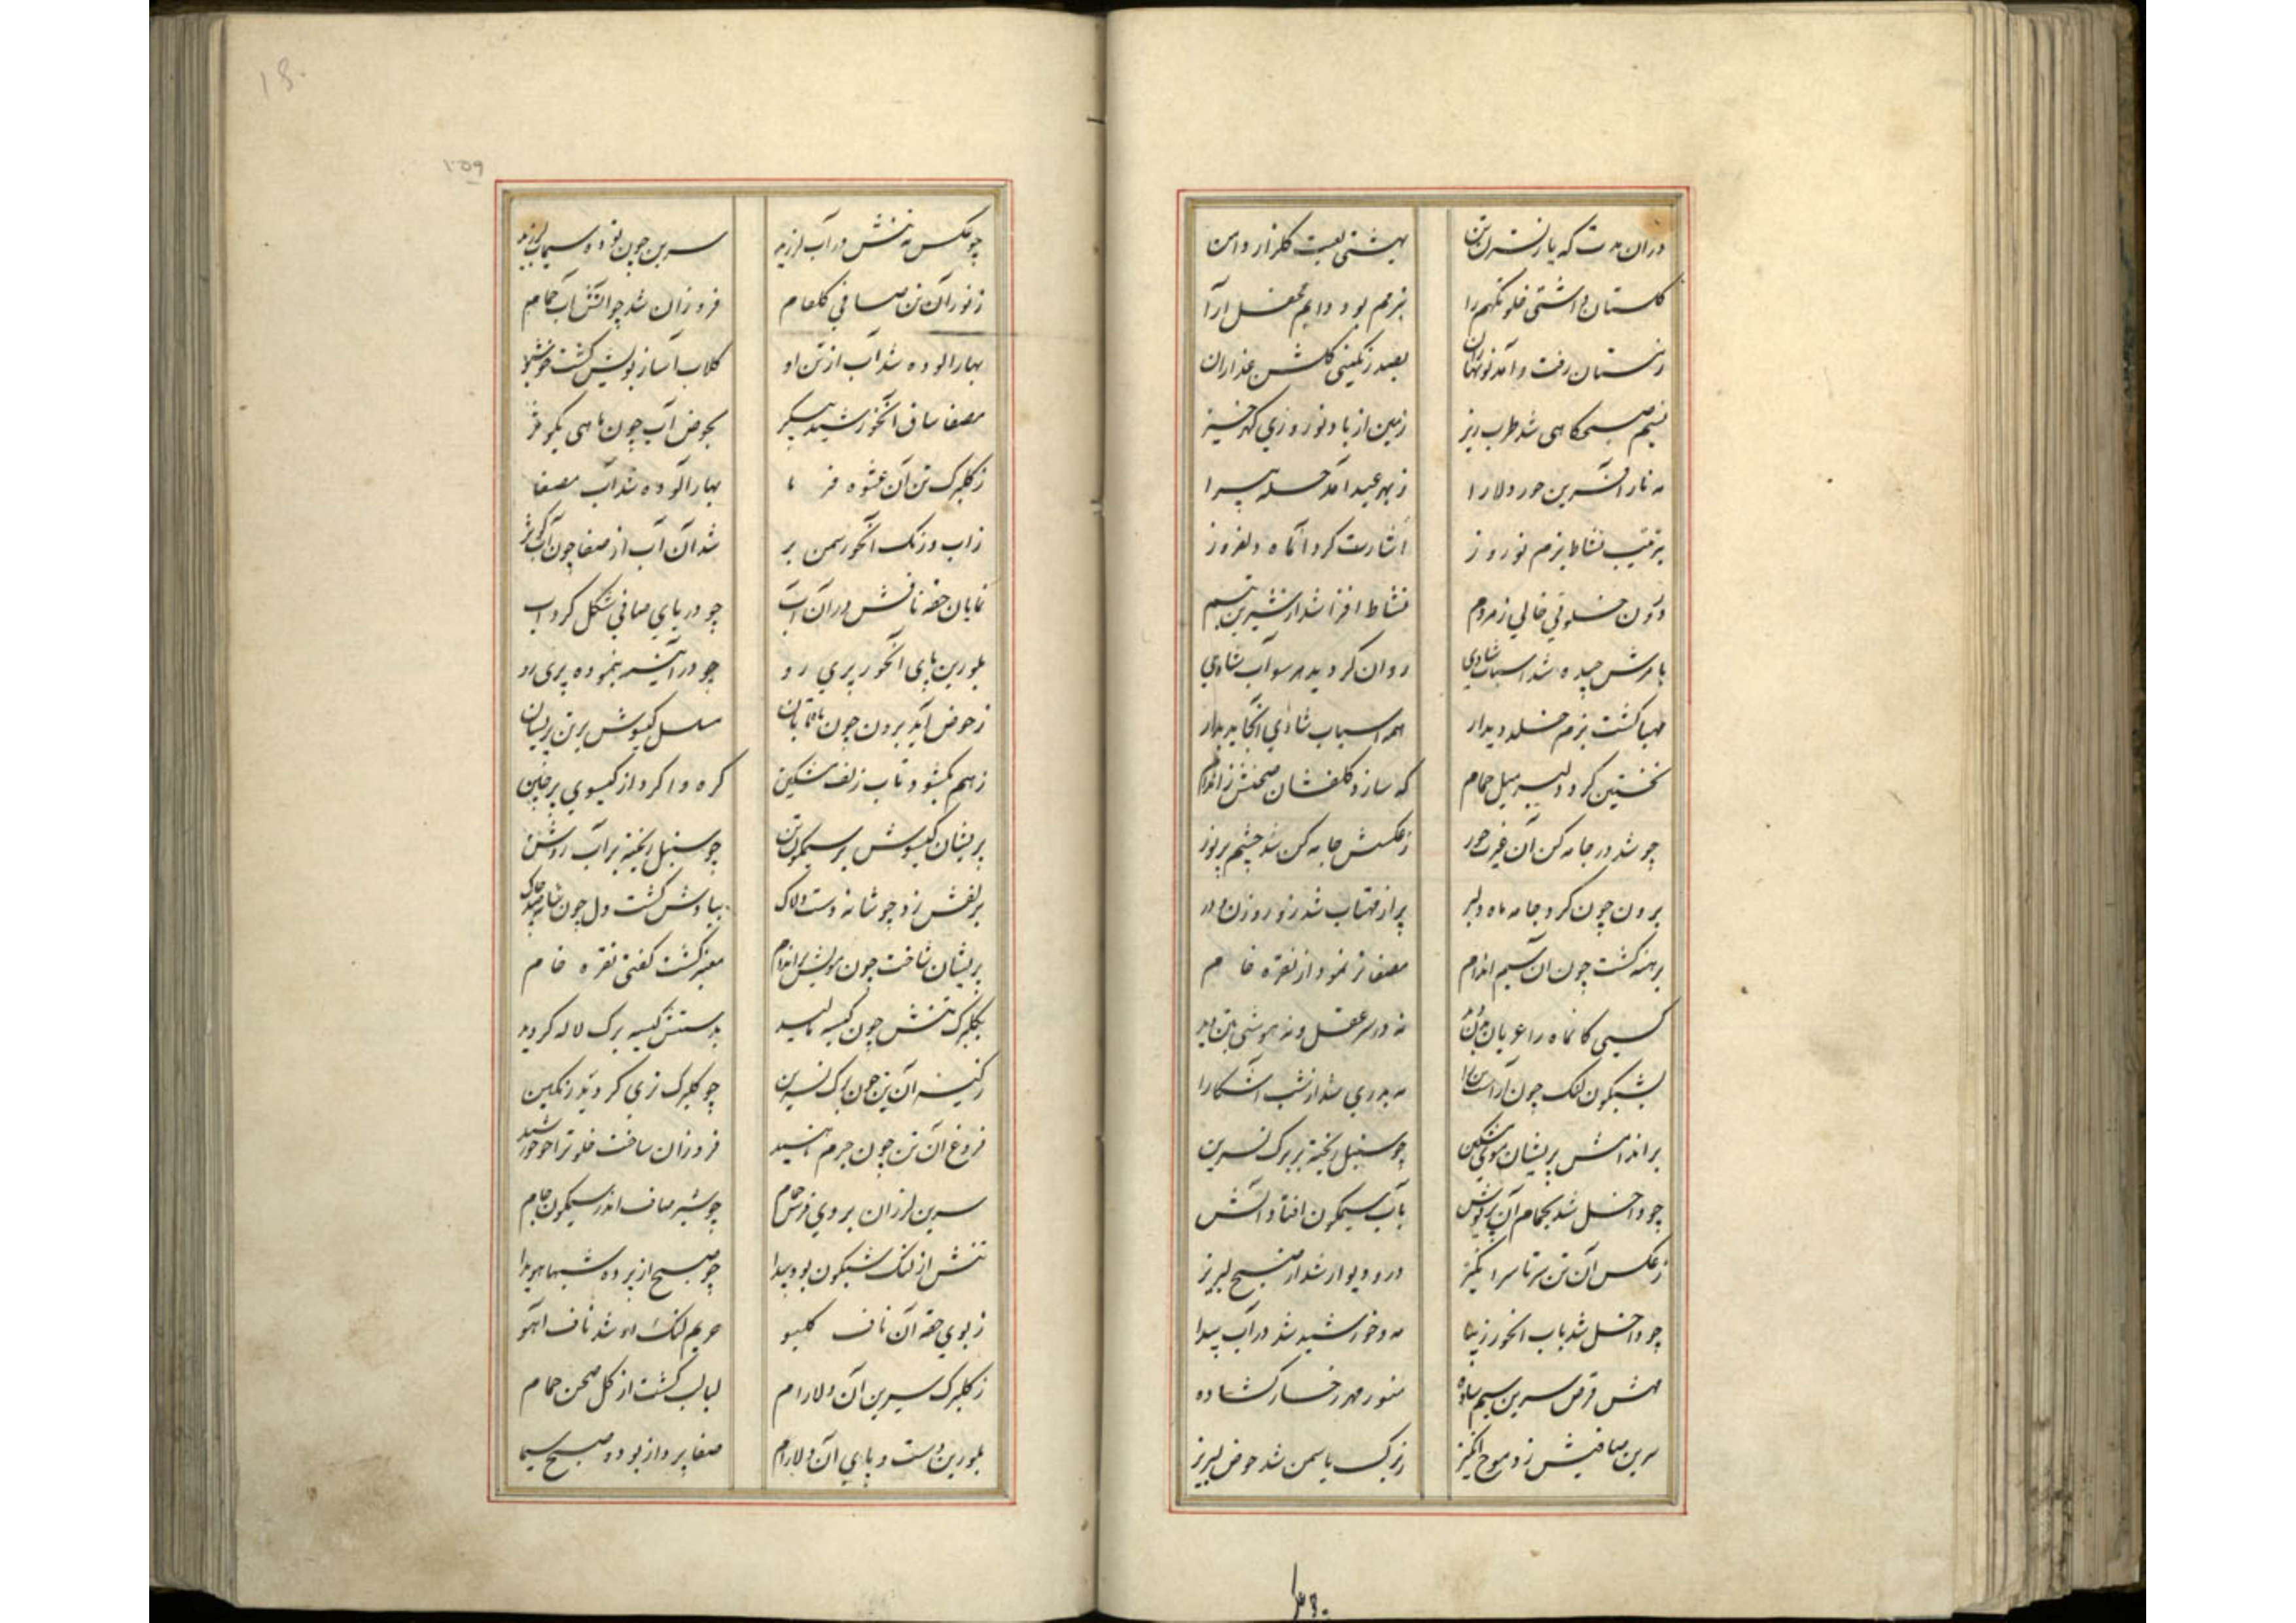 دران مدت که یار نسترن تن بهشتی لعبت گلزار دامن
گلستان داشتی خلوتگهم را بزمم بود دایم محفل آرا
زمستان رفت و آمد نوبهاران بصد رنگینی گلشن عذاران
نسیم صبحگاهی شد طرب ریز زمین از باد نوروزی گهرخیز
حور دلارا ز بهر عید آمد حله پیرا
بترتیب نشاط بزم نوروز اشارت کرد آنماه دلفروز
درون خلوتی خالی ز مردم نشاط افزا شد از شیرین تبسم
بامرش چیده شد اسباب شادی روان گردید هر سو آب شادی
مهیا گشت بزم خلد دیدار همه اسباب شادی آنجا پدیدار
نخستین کرد دلبر میل حمام که سازد گلفشان صحنش ز اندام
چو شد در جامه کن آن غیرت حور ز عکسش جامه کن شد چشم پر نور
برون چون کرد جامه ماه دلبر پر از مهتاب شد ز نور روزن و در
برهنه گشت چون آن سیم اندام مصفا تر نمود از نقره خام
کسی کانماه را عریان بدن دید نه در سر عقل و نه هوشی بتن دید
بشبگون لنگ چون آراست مه بدری شد از شب آشکارا
بر اندامش پریشان موی مشکین چو سنبل ریخته بر برگ نسرین
چو داخل شد بحمام آن پریوش بآب سیمگون افتاد آتش
ز عکس آن تن سرتاسر انگیز در و دیوار شد از صبح لبریز
چو داخل شد بآب آنحور زیبا مه و خورشید شد در آب پیدا
مهش قرص سرین سیم ساده منور مهر رخسار گشاده
سرین صافیش زد موج انگیز ز برگ یاسمن شد حوض لبریز
چو عکس مه تنش در آب لرزید سرین چون تودهٔ سیماب لرزید
ز نور آن تن صافی گلفام فروزان شد چو آتش آب حمام
بهار آلوده شد آب از تن او گلاب آسا ز بویش گشت خوشبو
مصفا ساق آنخورشید پیکر بحوض آب چون ماهی
ز گلبرگ تن آن عشوه فرما بهار آلوده شد آب مصفا
ز آب و رنگ آنحور سمن بر شد آن آب از صفا چون آب کوثر
نمایان حقه نافش در آن آب چو در دریای صافی شکل گرداب
بلورین پای آنحور پری رو چو در آئینه بنموده پری رو
ز حوض آمد برون چون ماه تابان مسلسل گیسوش بر تن پریشان
ز هم بگشود تاب زلف مشکین گره وا کرد از گیسوی پرچین
پریشان گیسوش بر سیمگون تن چو سنبل ریخته بر آب روشن
بزلفش زد چو شانه دست دلاک بیادش گشت دل چون شانه صد چاک
پریشان ساخت چون مویش بر اندام معنبر گشت گفتی نقره خام
بگلبرگ تنش چون کیسه مالید بدستش کیسه برگ لاله گردید
ز کیسه آن تن چون برگ نسرین چو گلبرگ تری گردید رنگین
فروغ آن تن چون جرم ناهید فروزان ساخت خلوت را چو خورشید
سرین لرزان بروی فرش حمام چو شیر صاف اندر سیمگون جام
تنش از لنگ شبگون بود پیدا چو صبح از پرده شبها هویدا
ز بوی حقه آن ناف گلبو حریم لنگ او شد ناف آهو
ز گلبرگ سرین آن دلارام لبالب گشت از گل صحن حمام
بلورین دست و پای آن دلارام صفا پرداز بود و صبح سیما